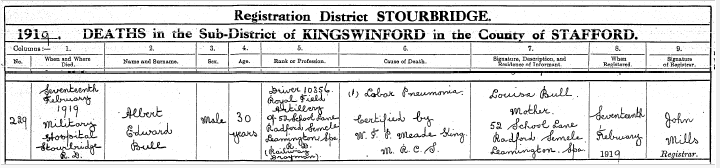 Registration District STOURBRIDGE.
1919. DEATHS in the Sub-District of KINGSWINFORD in the County of STAFFORD.
Columns:— 1. 2. 3. 4. 5. 6. 7. 8. 9.
No. When and Where Died. Name and Surname. Sex. Age. Rank or Profession. Cause of Death. Signature, Description, and Residence of Informant. When Registered. Signature of Registrar.
229
Seventeenth
February
1919
Military
Hospital
Stourbridge
R.D.
Albert
Edward
Bull
Male
30
years
Driver 10356
Royal Field
Artillery
Of 52 School Lane
Radford Semele
Leamington Spa
R.D.
(Railway
Drayman)
(1) Lobar Pneumonia.
Certified by
W. F. P. Meade
M.R.C.S.
Louisa Bull
Mother
52 School Lane
Radford Semele
Leamington Spa
Seventeenth
February
1919
John
Mills
Registrar.